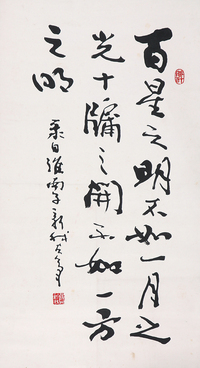 百星之明不如一月之
光十牖之開不如一户
之明
淮南子